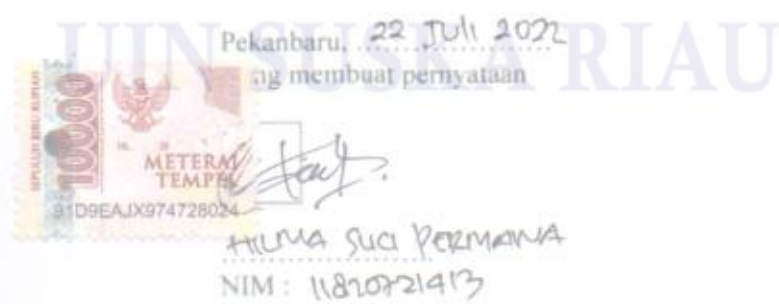 UIN SUSKA RIAU
Pekanbaru, 22 Juli 2022
ng membuat pernyataan
SEPULUH RIBU RUPIAH
10000
METERAI
TEMPEL
91D9EAJX974728024
HILMA SUCI PERMANA
NIM : 11820721413